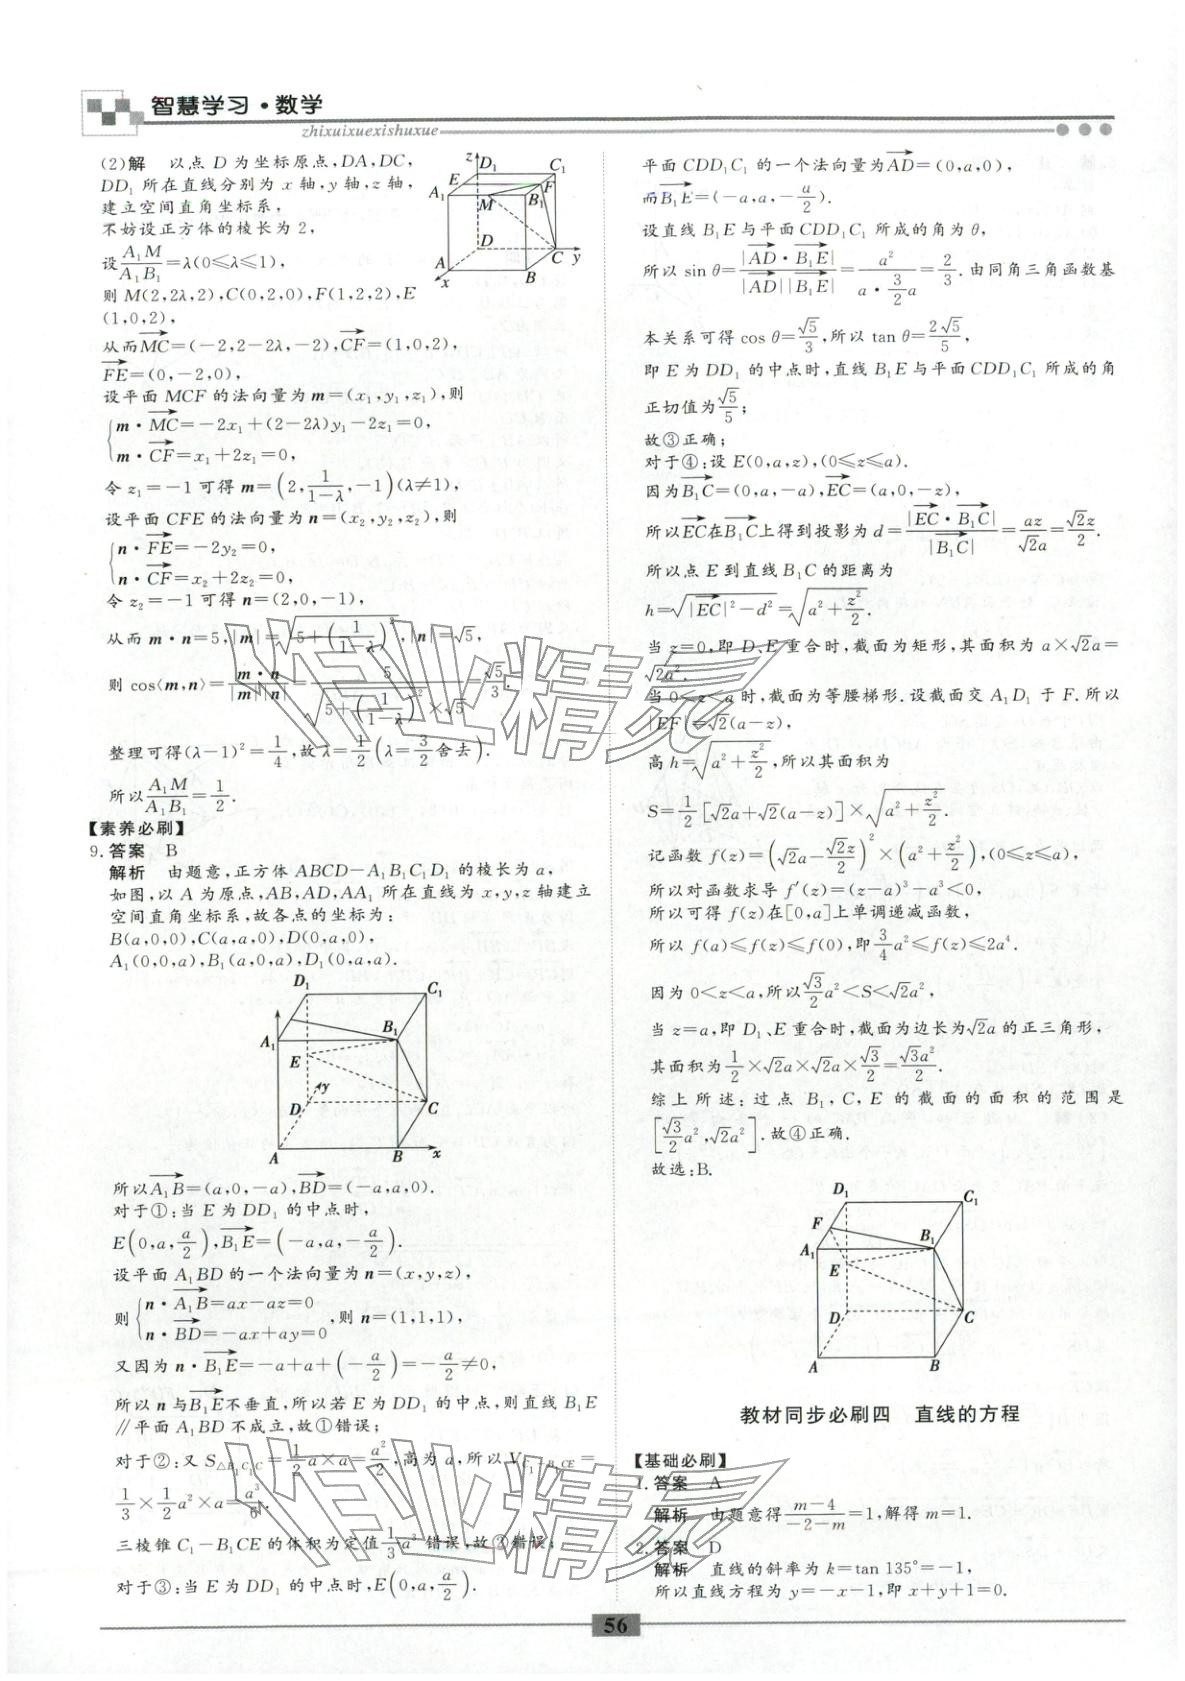 智慧学习·数学
zhixuixuexishuxue
(2)解 以点 D 为坐标原点,DA,DC,
DD₁ 所在直线分别为 x 轴,y 轴,z 轴,
建立空间直角坐标系,
不妨设正方体的棱长为 2,
设A₁M/A₁B₁=λ(0≤λ≤1),
则 M(2,2λ,2),C(0,2,0),F(1,2,2),E
(1,0,2),
从而MC→=(-2,2-2λ,-2),CF→=(1,0,2),
FE→=(0,-2,0),
设平面 MCF 的法向量为 m=(x₁,y₁,z₁),则
{m·MC→=-2x₁+(2-2λ)y₁-2z₁=0,
m·CF→=x₁+2z₁=0,
令 z₁=-1 可得 m=(2,1/(1-λ),-1)(λ≠1),
设平面 CFE 的法向量为 n=(x₂,y₂,z₂),则
{n·FE→=-2y₂=0,
n·CF→=x₂+2z₂=0,
令 z₂=-1 可得 n=(2,0,-1),
从而 m·n=5,|m|=√(5+(1/(1-λ))²),|n|=√5,
则 cos⟨m,n⟩=m·n/(|m||n|)=5/(√(5+(1/(1-λ))²)×√5)=√5/3.
整理可得(λ-1)²=1/4,故 λ=1/2(λ=3/2舍去).
所以A₁M/A₁B₁=1/2.
【素养必刷】
9.答案 B
解析 由题意,正方体 ABCD-A₁B₁C₁D₁ 的棱长为 a,
如图,以 A 为原点,AB,AD,AA₁ 所在直线为 x,y,z 轴建立
空间直角坐标系,故各点的坐标为:
B(a,0,0),C(a,a,0),D(0,a,0),
A₁(0,0,a),B₁(a,0,a),D₁(0,a,a).
所以A₁B→=(a,0,-a),BD→=(-a,a,0).
对于①:当 E 为 DD₁ 的中点时,
E(0,a,a/2),B₁E→=(-a,a,-a/2).
设平面 A₁BD 的一个法向量为 n=(x,y,z),
则{n·A₁B→=ax-az=0
n·BD→=-ax+ay=0,则 n=(1,1,1),
又因为 n·B₁E→=-a+a+(-a/2)=-a/2≠0,
所以 n 与B₁E→不垂直,所以若 E 为 DD₁ 的中点,则直线 B₁E
∥平面 A₁BD 不成立,故①错误;
对于②:又 S△B₁C₁C=1/2a×a=a²/2,高为 a,所以 V_C₁-B₁CE=
1/3×1/2a²×a=a³/6.
三棱锥 C₁-B₁CE 的体积为定值1/3a³错误,故②错误;
对于③:当 E 为 DD₁ 的中点时,E(0,a,a/2).
平面 CDD₁C₁ 的一个法向量为AD→=(0,a,0),
而B₁E→=(-a,a,-a/2).
设直线 B₁E 与平面 CDD₁C₁ 所成的角为 θ,
所以 sin θ=|AD→·B₁E→|/(|AD→||B₁E→|)=a²/(a·3/2a)=2/3.由同角三角函数基
本关系可得 cos θ=√5/3,所以 tan θ=2√5/5,
即 E 为 DD₁ 的中点时,直线 B₁E 与平面 CDD₁C₁ 所成的角
正切值为√5/5;
故③正确;
对于④:设 E(0,a,z),(0≤z≤a).
因为B₁C→=(0,a,-a),EC→=(a,0,-z),
所以EC→在B₁C→上得到投影为 d=|EC→·B₁C→|/|B₁C→|=az/√2a=√2z/2.
所以点 E 到直线 B₁C 的距离为
h=√(|EC→|²-d²)=√(a²+z²/2).
当 z=0,即 D、E 重合时,截面为矩形,其面积为 a×√2a=
√2a².
当 0<z<a 时,截面为等腰梯形.设截面交 A₁D₁ 于 F.所以
|EF|=√2(a-z),
高 h=√(a²+z²/2),所以其面积为
S=1/2[√2a+√2(a-z)]×√(a²+z²/2).
记函数 f(z)=(√2a-√2z/2)²×(a²+z²/2),(0≤z≤a),
所以对函数求导 f′(z)=(z-a)³-a³<0,
所以可得 f(z)在[0,a]上单调递减函数,
所以 f(a)≤f(z)≤f(0),即3/4a²≤f(z)≤2a⁴.
因为 0<z<a,所以√3/2a²<S<√2a²,
当 z=a,即 D₁、E 重合时,截面为边长为√2a 的正三角形,
其面积为1/2×√2a×√2a×√3/2=√3a²/2.
综上所述:过点 B₁,C,E 的截面的面积的范围是
[√3/2a²,√2a²].故④正确.
故选:B.
教材同步必刷四 直线的方程
【基础必刷】
1.答案 A
解析 由题意得(m-4)/(-2-m)=1,解得 m=1.
2.答案 D
解析 直线的斜率为 k=tan 135°=-1,
所以直线方程为 y=-x-1,即 x+y+1=0.
56
作业精灵
作业精灵